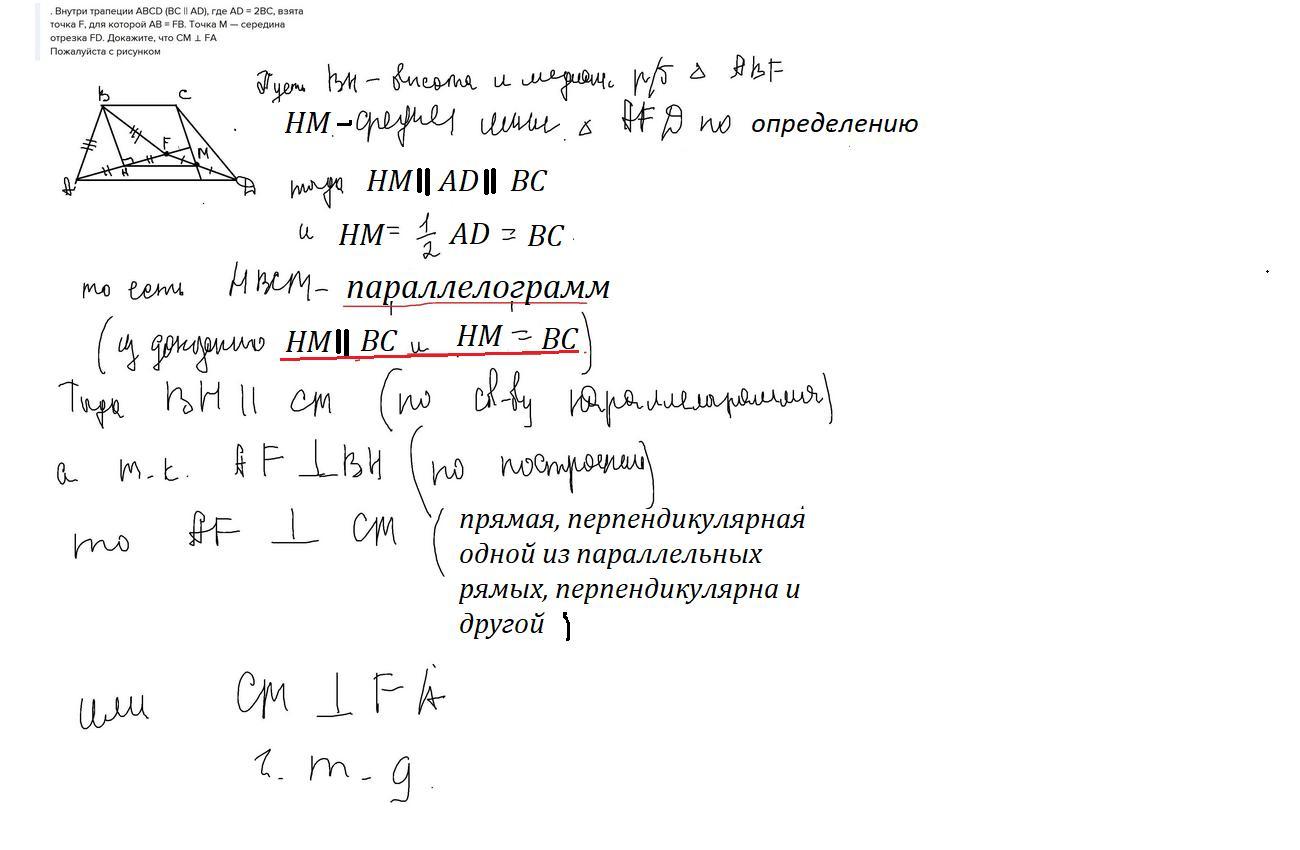 . Внутри трапеции ABCD (BC || AD), где AD = 2BC, взята
точка F, для которой AB = FB. Точка M — середина
отрезка FD. Докажите, что CM ⊥ FA
Пожалуйста с рисунком
B C
F M
A H D
Пусть BH - высота и медиан. р/б △ ABF
HM - средняя лин. △ AFD по определению
тогда HM || AD || BC
и HM = 1/2 AD = BC
то есть HBCM - параллелограмм
(из доказанного HM || BC и HM = BC)
Тогда BH || CM (по св-ву параллелограмма)
а т.к. AF ⊥ BH (по построению)
то AF ⊥ CM ( прямая, перпендикулярная
одной из параллельных
рямых, перпендикулярна и
другой )
или CM ⊥ FA
ч. т. д.